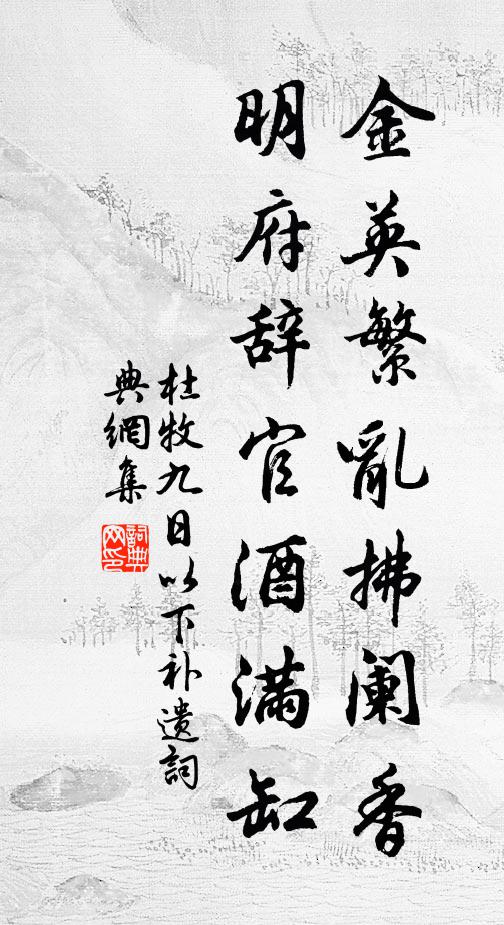 金英繁亂拂阑香
明府辞官酒满缸
杜牧九日以下补遗詞
典網集
詞典
网印